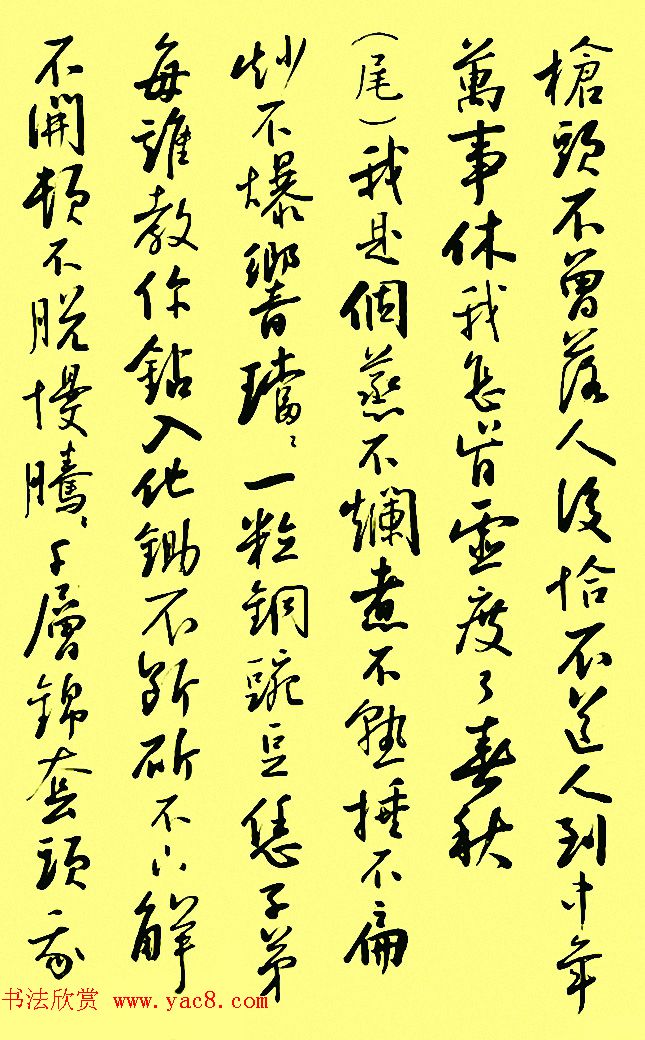 槍頭不曾落人後恰不道人到中年
萬事休我怎肯虛度了春秋
(尾)我是個蒸不爛煮不熟捶不扁
炒不爆響璫〻一粒銅豌豆恁子弟
每誰教你鑽入他鋤不斷斫不下解
不開頓不脫慢騰〻千層錦套頭我
书法欣赏 www.yac8.com